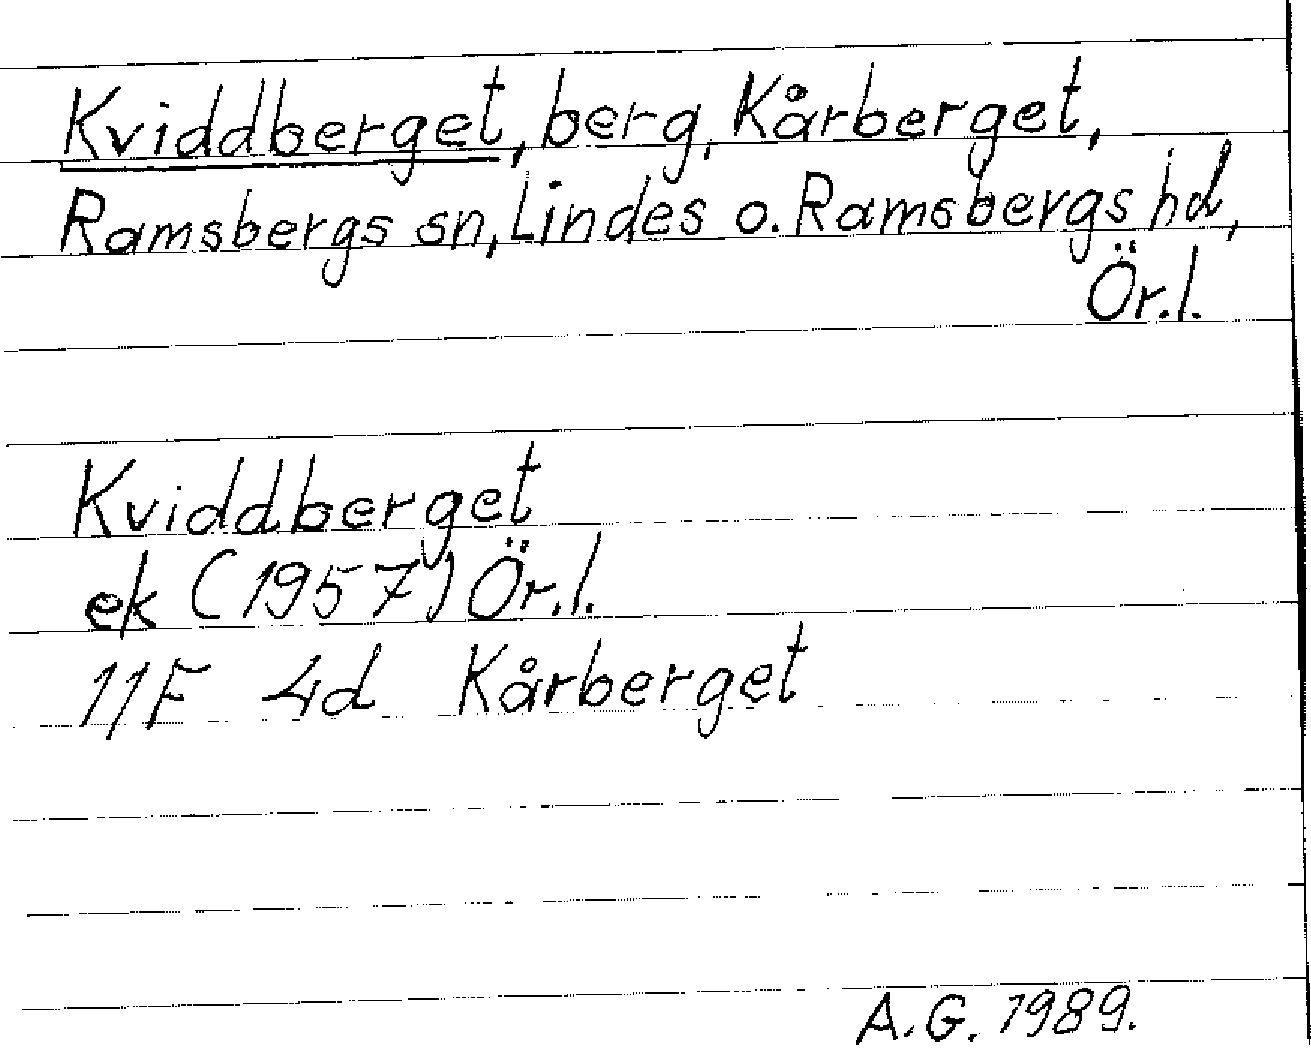 Kviddberget, berg, Kårberget,
Ramsbergs sn, Lindes o. Ramsbergs hd,
Ör.l.
Kviddberget
ek (1957) Ör.l.
11F 4d Kårberget
A.G. 1989.